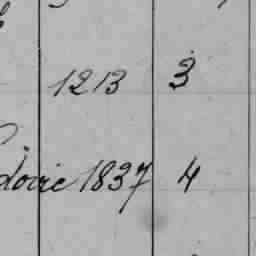 1213 3
dovic 1837 4